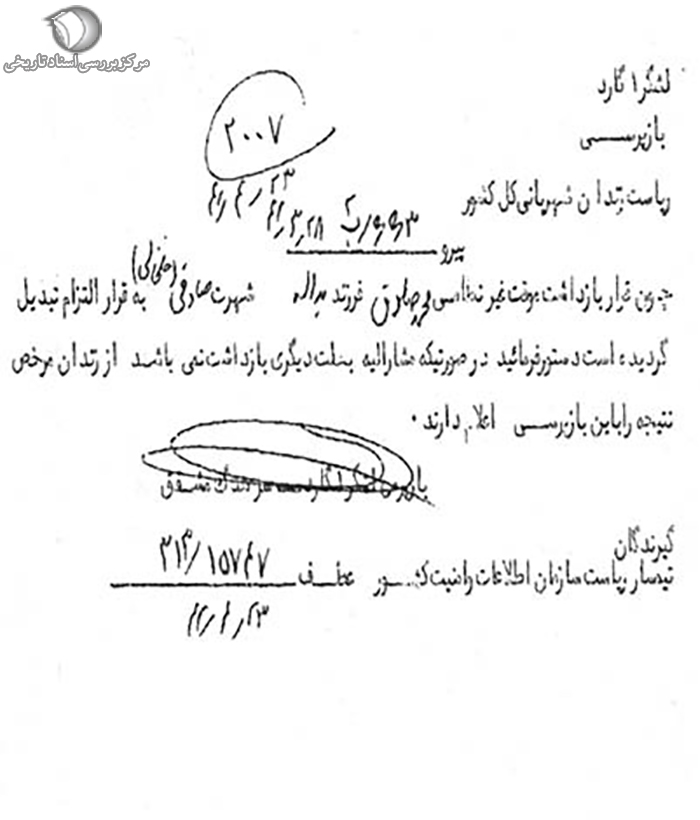 مرکز بررسی اسناد تاریخی
لشگر ۱ گارد
بازپرسی
۲۰۰۷
ریاست زندان شهربانی کل کشور
پیرو
چون قرار بازداشت موقت غیر نظامی محمد صادق فرزند یداله شهرت صادقی (خلخالی) به قرار التزام تبدیل
گردیده است دستور فرمائید در صورتیکه مشارالیه بعلت دیگری بازداشت نمی باشد از زندان مرخص
نتیجه را باین بازپرسی اعلام دارند .
بازپرس لشگر ۱ گارد
گیرندگان
تیمسار ریاست سازمان اطلاعات و امنیت کشور عطف ۳۱۳/۱۵۷۴۷